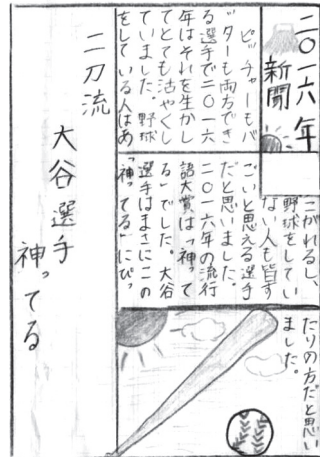 二〇一六年
新聞
二刀流
大谷選手
神ってる
ピッチャーもバ
ッターも両方でき
る選手で二〇一六
年はそれを生かし
てとても活やくし
ていました。野球
をしている人はあ
こがれるし、
野球をしてい
ない人も皆す
ごいと思える選手
だと思いました。
二〇一六年の流行
語大賞は「神って
る」でした。大谷
選手はまさにこの
「神ってる」にぴっ
たりの方だと思い
ました。